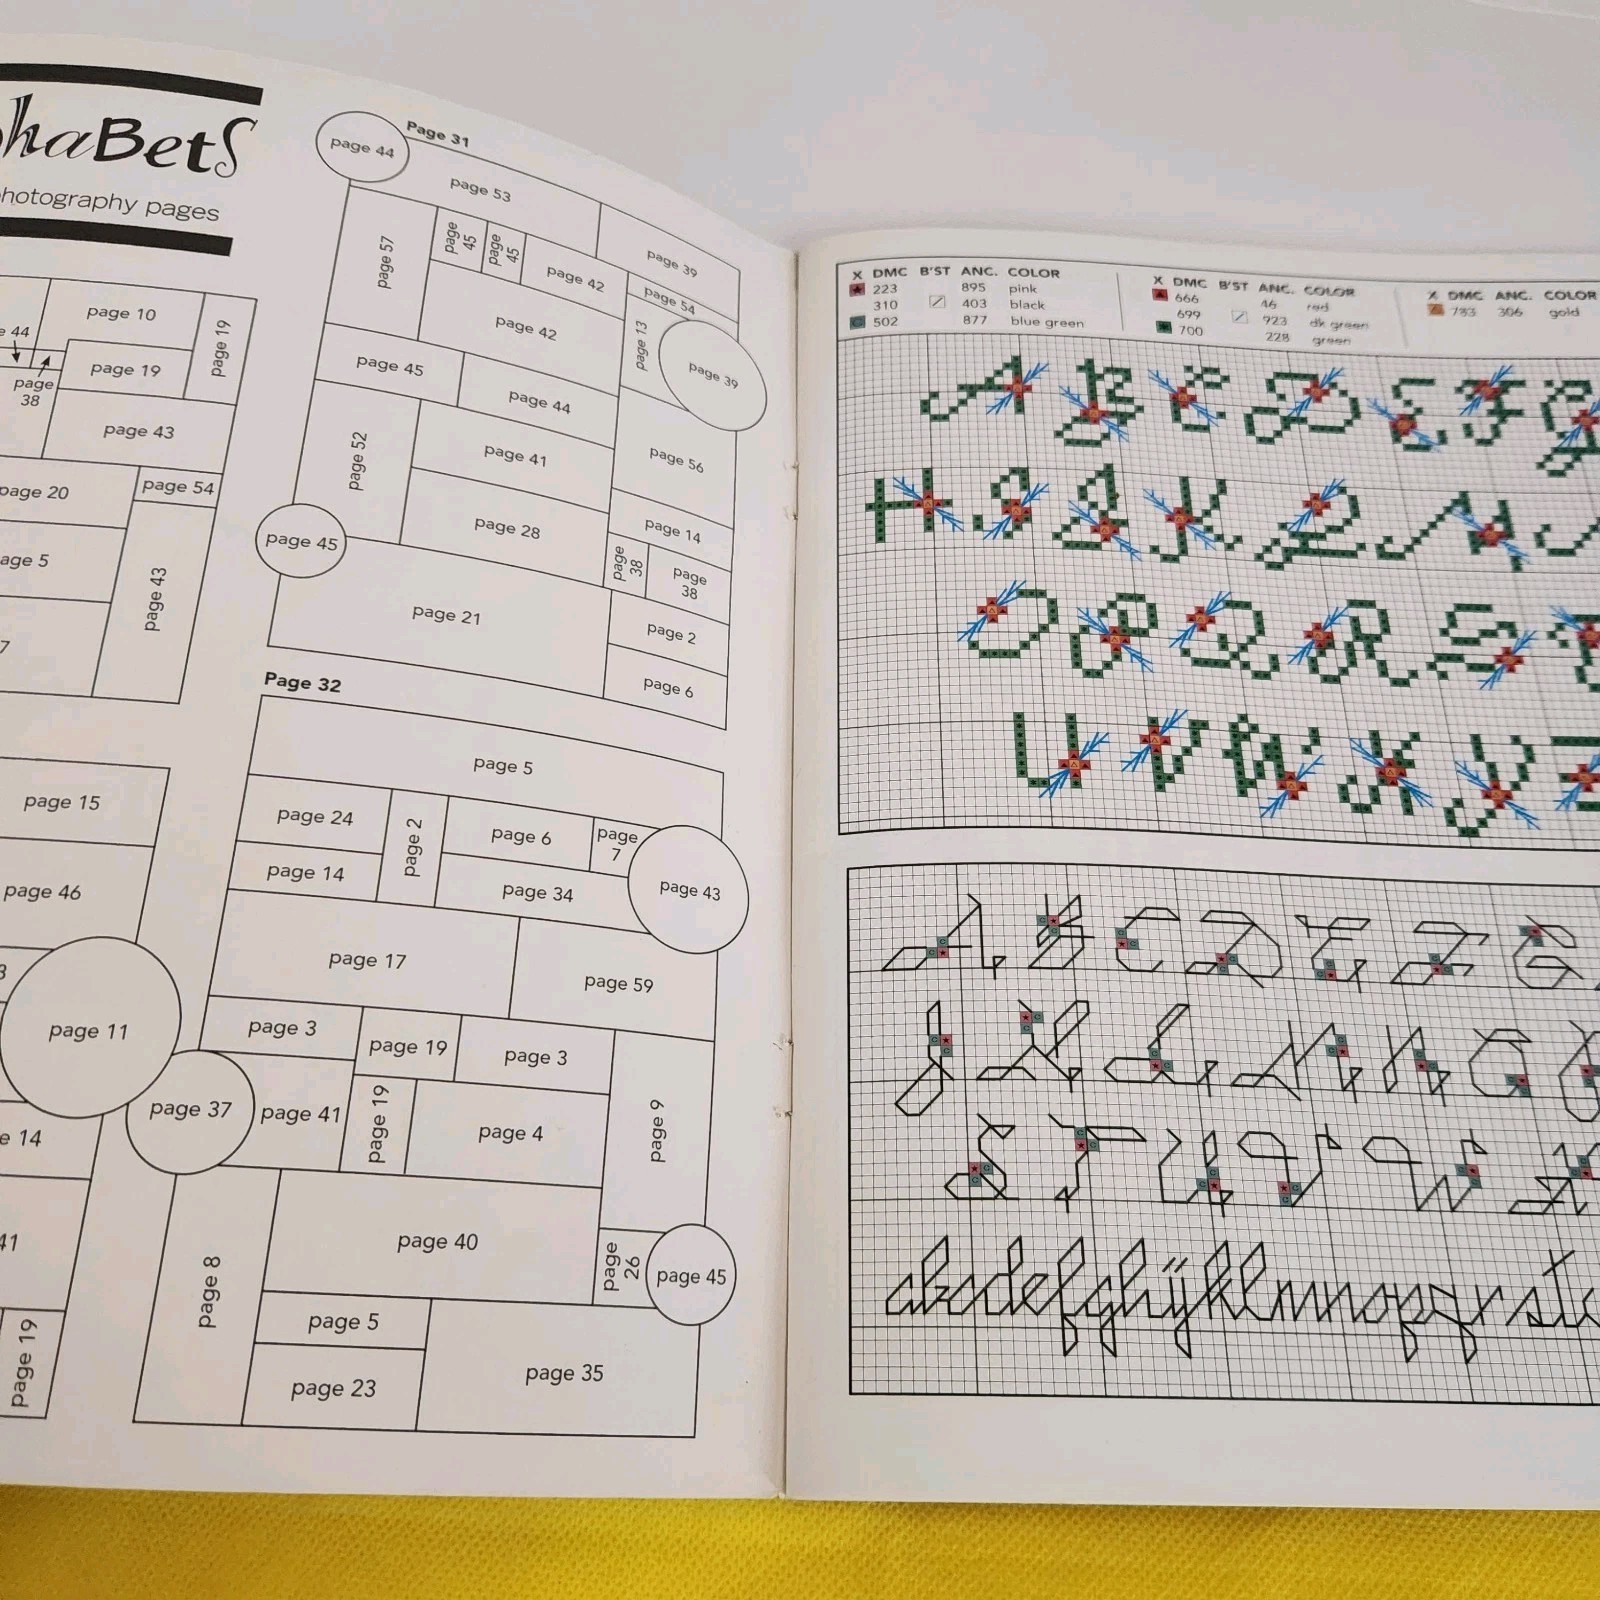 haBetS
hotography pages
page 10
page 19
e 44
page 19
page
38
page 43
page 20
page 54
age 5
page 43
7
page 15
page 46
3
page 11
e 14
41
page 19
Page 31
page 44
page 53
page 39
page 57
page
45
page
45
page 42
page 54
page 42
page 13
page 39
page 45
page 44
page 52
page 41
page 56
page 28
page 14
page 45
page
38
page
38
page 21
page 2
page 6
Page 32
page 5
page 24
page 2
page 6
page
7
page 14
page 34
page 43
page 17
page 59
page 3
page 19
page 3
page 37
page 41
page 19
page 4
page 9
page 8
page 40
page
26
page 45
page 5
page 23
page 35
X DMC B'ST ANC. COLOR
223 895 pink
310 403 black
502 877 blue green
X DMC B'ST ANC. COLOR
666 46 red
699 923 dk green
700 228 green
X DMC ANC. COLOR
783 306 gold
A B C D E F G
H I J K L M
O P Q R S T
U V W X Y Z
A B C D E F G
J K L M N O
S T U V W X
abcdefghijklmnopqrstu